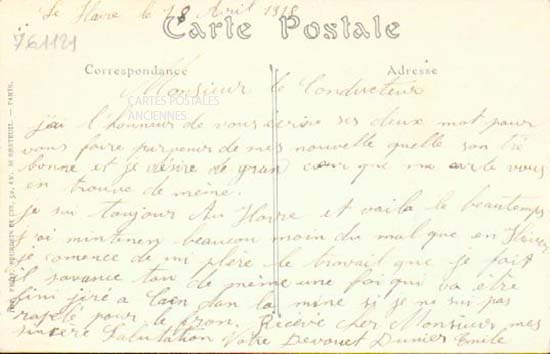 Le Havre le 18 Avril 1918
Carte Postale
761121
Correspondance
Adresse
Monsieur le Conducteur
CARTES POSTALES
ANCIENNES
j'ai l'honneur de vous ecrire ses deux mot pour
vous faire parvenir de mes nouvelle quelle son trè
bonne et je désire de grand cœur que ma carte vous
en trouve de meme.
je sui toujour Au Havre et voila le beautemps
j'ai mintenen beaucou moin du mal que en Hiver
je comence de mi plere le travail que je fait
il savance tan de même une foi qui va etre
fini jiré a Caen dan la mine si je ne sui pas
rapelé pour le fron. Recevé cher Monsieur mes
sincère Salutation Votre Devouet Dunier Emile